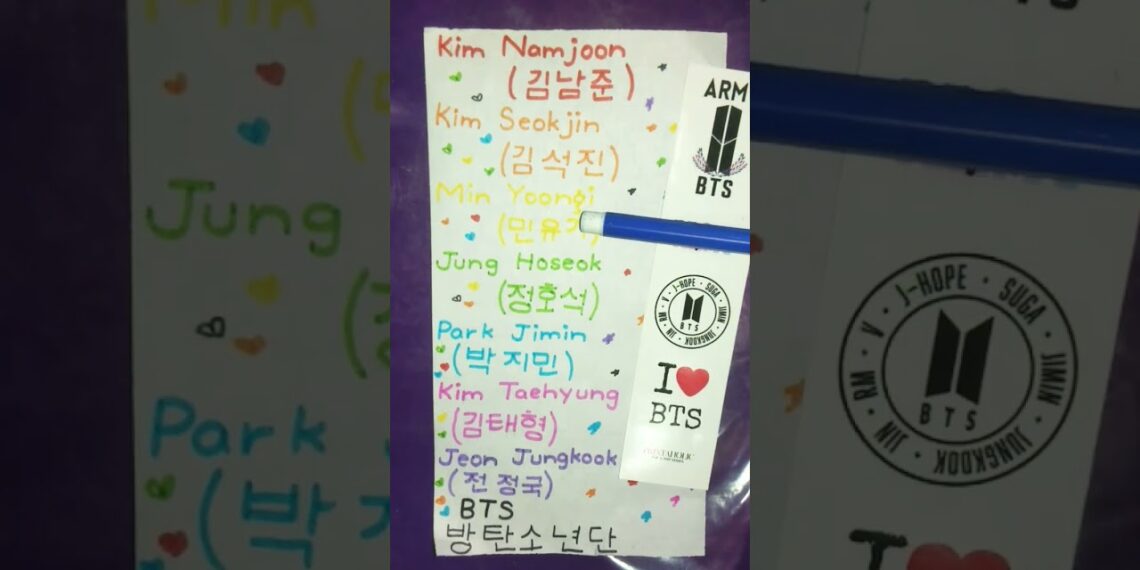 Kim Namjoon
(김남준)
Kim Seokjin
(김석진)
Min Yoongi
(민유기)
Jung Hoseok
(정호석)
Park Jimin
(박지민)
Kim Taehyung
(김태형)
Jeon Jungkook
(전정국)
BTS
방탄소년단
ARM
BTS
J-HOPE · SUGA · JIMIN · JUNGKOOK · JIN · RM · V ·
BTS
I ❤ BTS